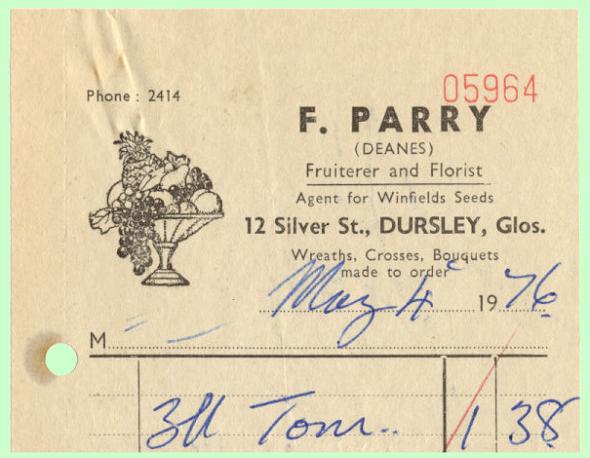 05964
Phone : 2414
F. PARRY
(DEANES)
Fruiterer and Florist
Agent for Winfields Seeds
12 Silver St., DURSLEY, Glos.
Wreaths, Crosses, Bouquets
made to order
May 4 1976
M
3lb Tom.. 1 38